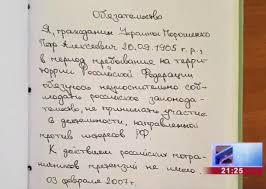 Обязательство
Я, гражданин Украины Порошенко
Петр Алексеевич 26.09.1965 г.р.,
в период пребывания на терри-
тории Российской Федерации
обязуюсь неукоснительно соб-
людать российское законода-
тельство, не принимать участие
в деятельности, направленной
против интересов РФ.
К действиям российских погра-
ничников претензий не имею.
03 февраля 2007г.
21:25